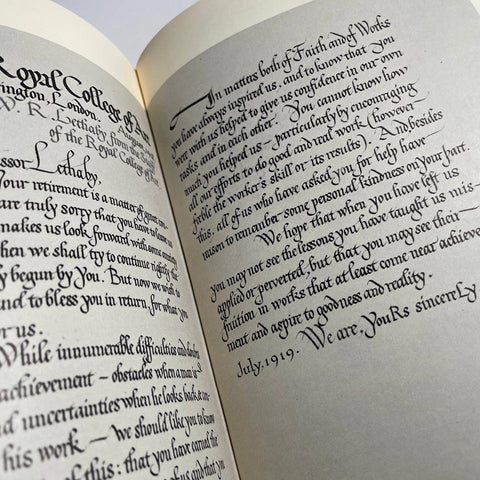 Royal College of Art
ington, London.
W. R. Lethaby, from the
of the Royal College of Art
ssor Lethaby,
our retirement is a matter of
are truly sorry that you have to leave us
makes us look forward with some anxiety
hen we shall try to continue rightly the
y begun by You. But now we wish to
nd to bless you in return, for what you
or us.
While innumerable difficulties and
achievement — obstacles when a man is
d uncertainties when he looks back &
his work — we should like you to know
of this: that you have earned the
us and that you
In matters both of Faith and of Works
you have always inspired us, and to know that you
were with us helped to give us confidence in our own
tasks and in each other. You cannot know how
much you helped us — particularly by encouraging
all our efforts to do good and real work (however
feeble the worker's skill or its results). And, besides
this, all of us who have asked you for help have
reason to remember some personal kindness on Your part.
We hope that when you have left us
you may not see the lessons you have taught us mis-
applied or perverted, but that you may see their
fruition in works that at least come near achieve-
ment and aspire to goodness and reality.
July, 1919. We are, YouRs sincerely